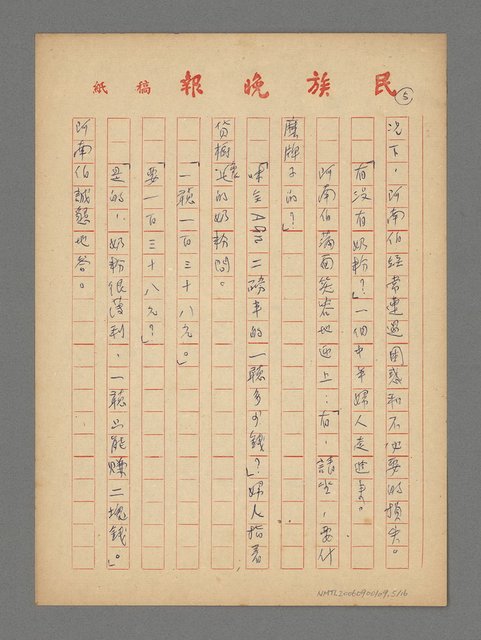 民族晚報 稿紙
5
況下，阿南伯經常遭遇困惑和不必要的損失。
「有沒有奶粉？」一個中年婦人走進來。
阿南伯滿面笑容地迎上：「有，請坐，要什
麼牌子的？」
「味全 二磅半的一聽多少錢？」婦人指着
貨櫃裏的奶粉問。
「一聽一百三十八元。」
「要一百三十八元？」
「是的，奶粉很薄利，一聽只能賺二塊錢。」
阿南伯誠懇地答。
NMTL20060900109, 5/16